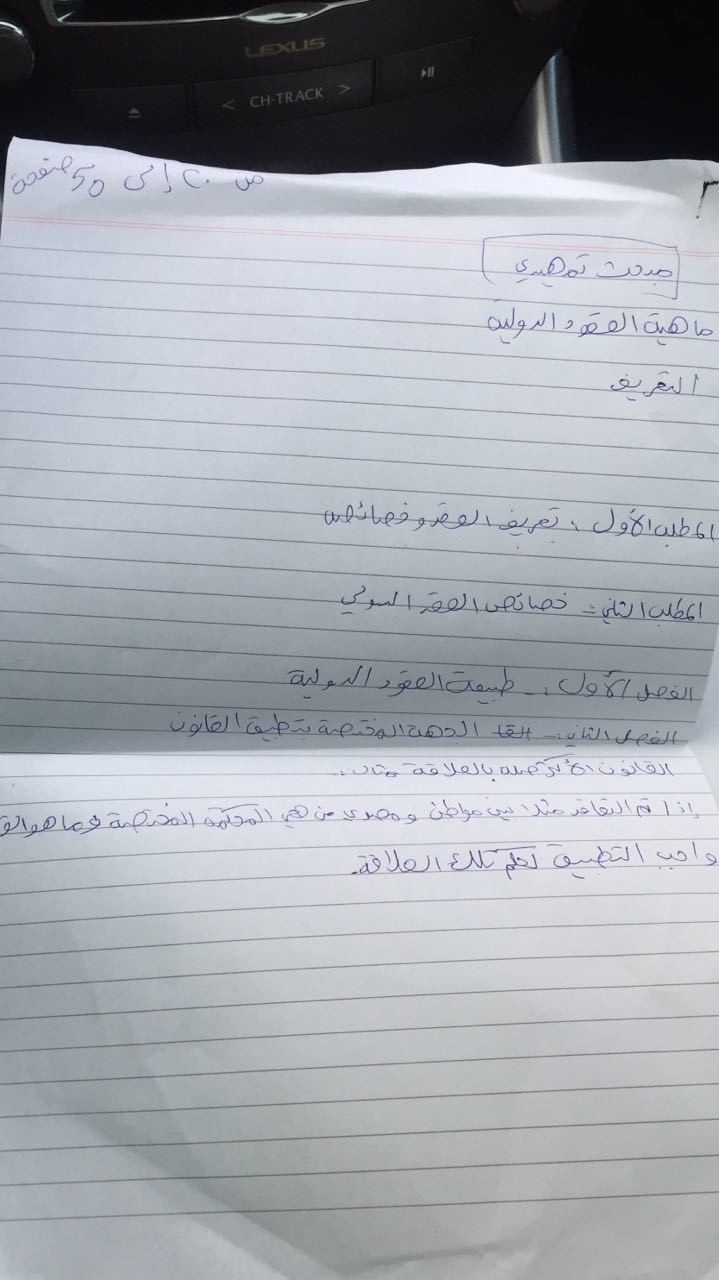 LEXUS
< CH·TRACK >
من ٢٠ إلى 50 صفحة
مبحث تمهيدي
ماهية العقود الدولية
التعريف
المطلب الأول: تعريف العقد وخصائصه
المطلب الثاني:- خصائص العقد الدولي
الفصل الأول:- طبيعة العقود الدولية
الفصل الثاني:- الجهة المختصة بتطبيق القانون
القانون الأكثر صله بالعلاقة مثال:-
إذا تم التعاقد مثلا بين مواطن ومصري من هي المحكمة المختصة وما هو
واجب التطبيق لعلم تلك العلاقة.